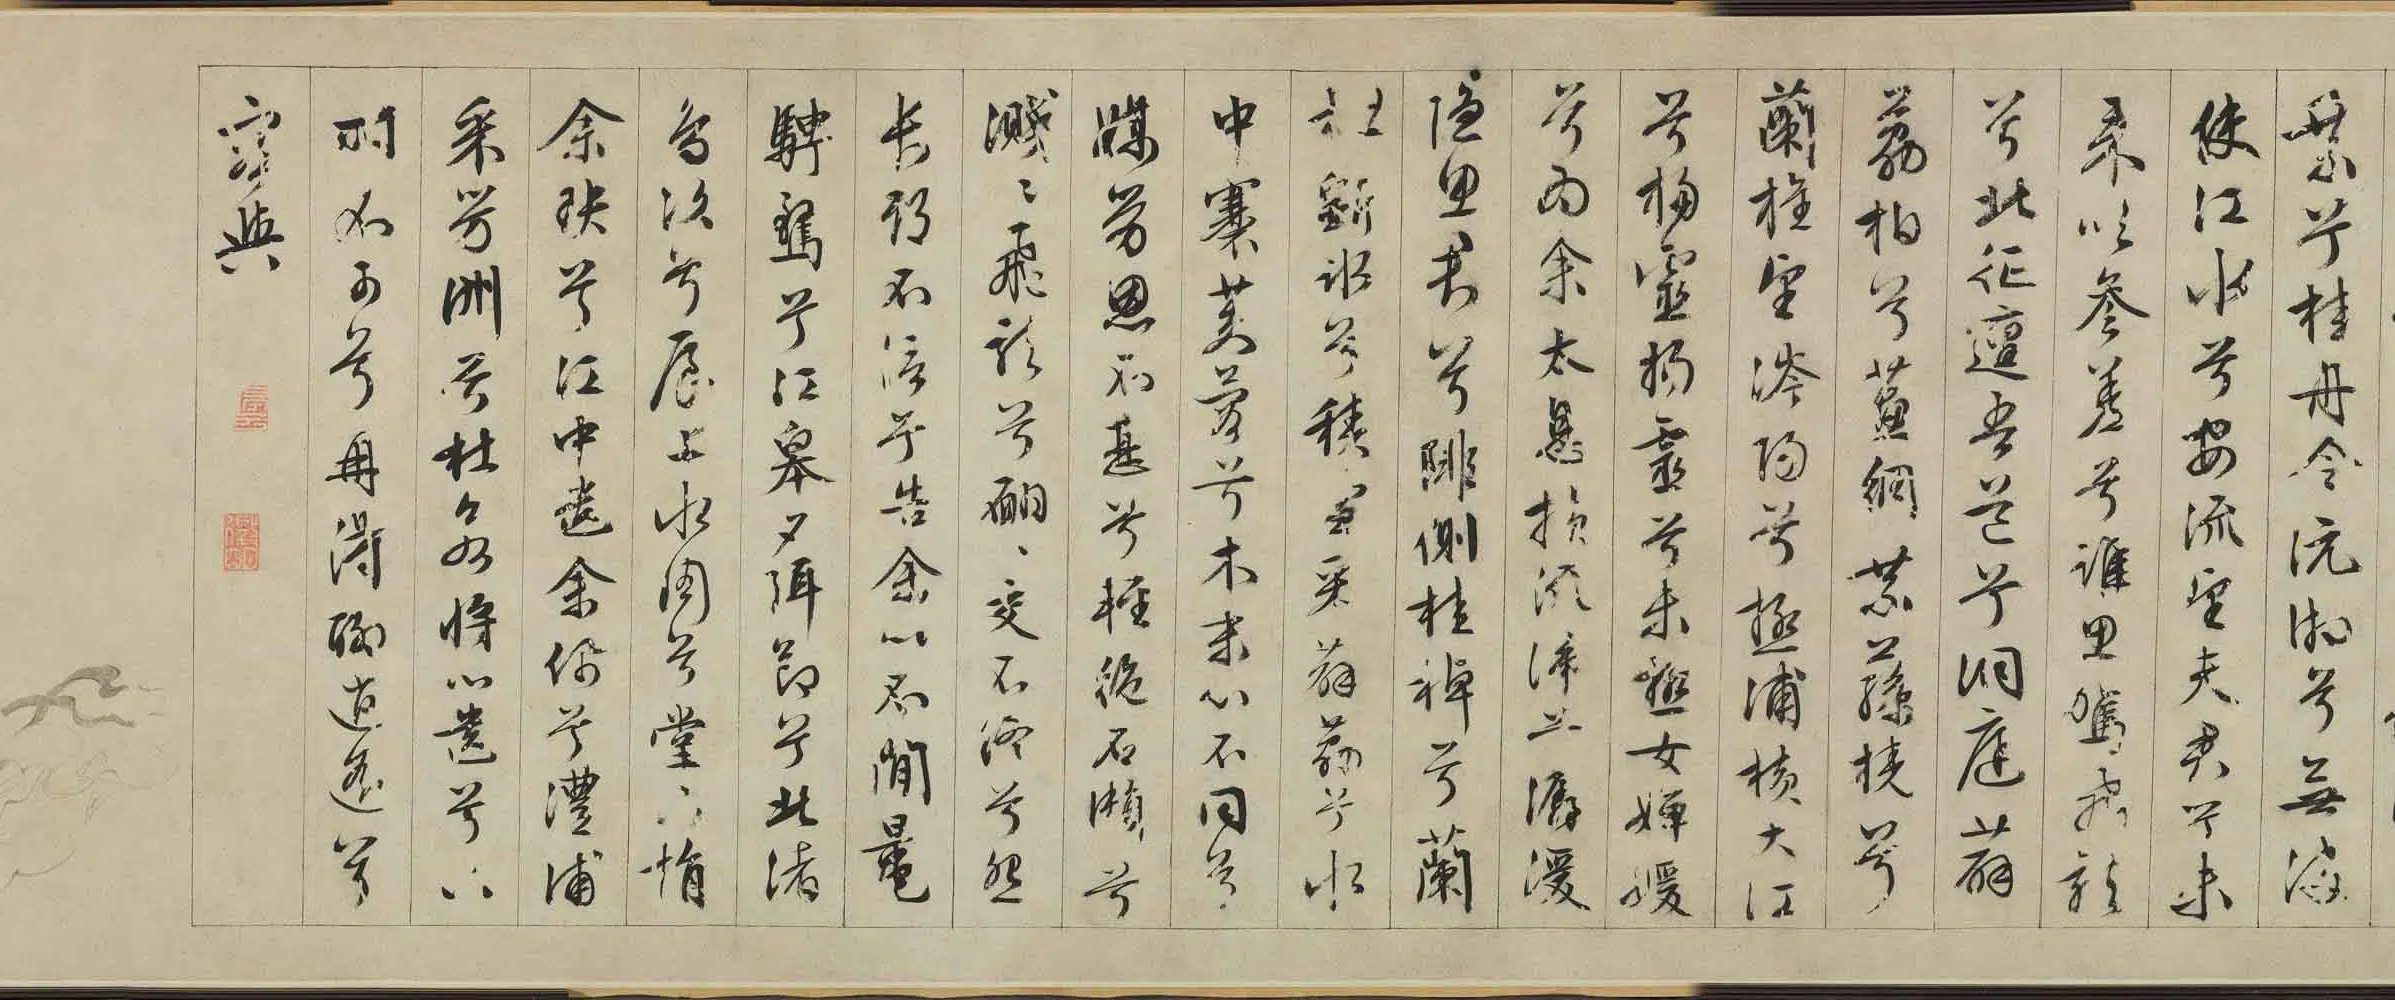 乘兮桂舟令沅湘兮無波
使江水兮安流望夫君兮未
來吹參差兮誰思駕飛龍
兮北征邅吾道兮洞庭薜
荔柏兮蕙綢蓀橈兮
蘭旌望涔陽兮極浦橫大江
兮揚靈揚靈兮未極女嬋媛
兮為余太息橫流涕兮潺湲
隱思君兮陫側桂櫂兮蘭
枻斲冰兮積雪采薜荔兮水
中搴芙蓉兮木末心不同兮
媒勞恩不甚兮輕絕石瀨兮
濺〻飛龍兮翩〻交不忠兮怨
長期不信兮告余以不閒鼂
騁騖兮江皋夕弭節兮北渚
鳥次兮屋上水周兮堂下捐
余玦兮江中遺余佩兮澧浦
采芳洲兮杜若將以遺兮下
時不可兮再得聊逍遙兮
容與